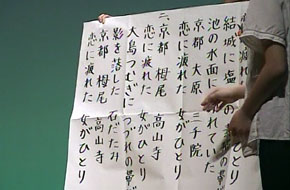 結城に塩の 女がひとり
池の水面に ゆれていた
京都 大原 三千院
恋に疲れた 女がひとり
二、
京都 栂尾 高山寺
恋に疲れた 女がひとり
大島つむぎに つづれの
影を落した 石だたみ
京都 栂尾 高山寺
恋に疲れた 女がひとり